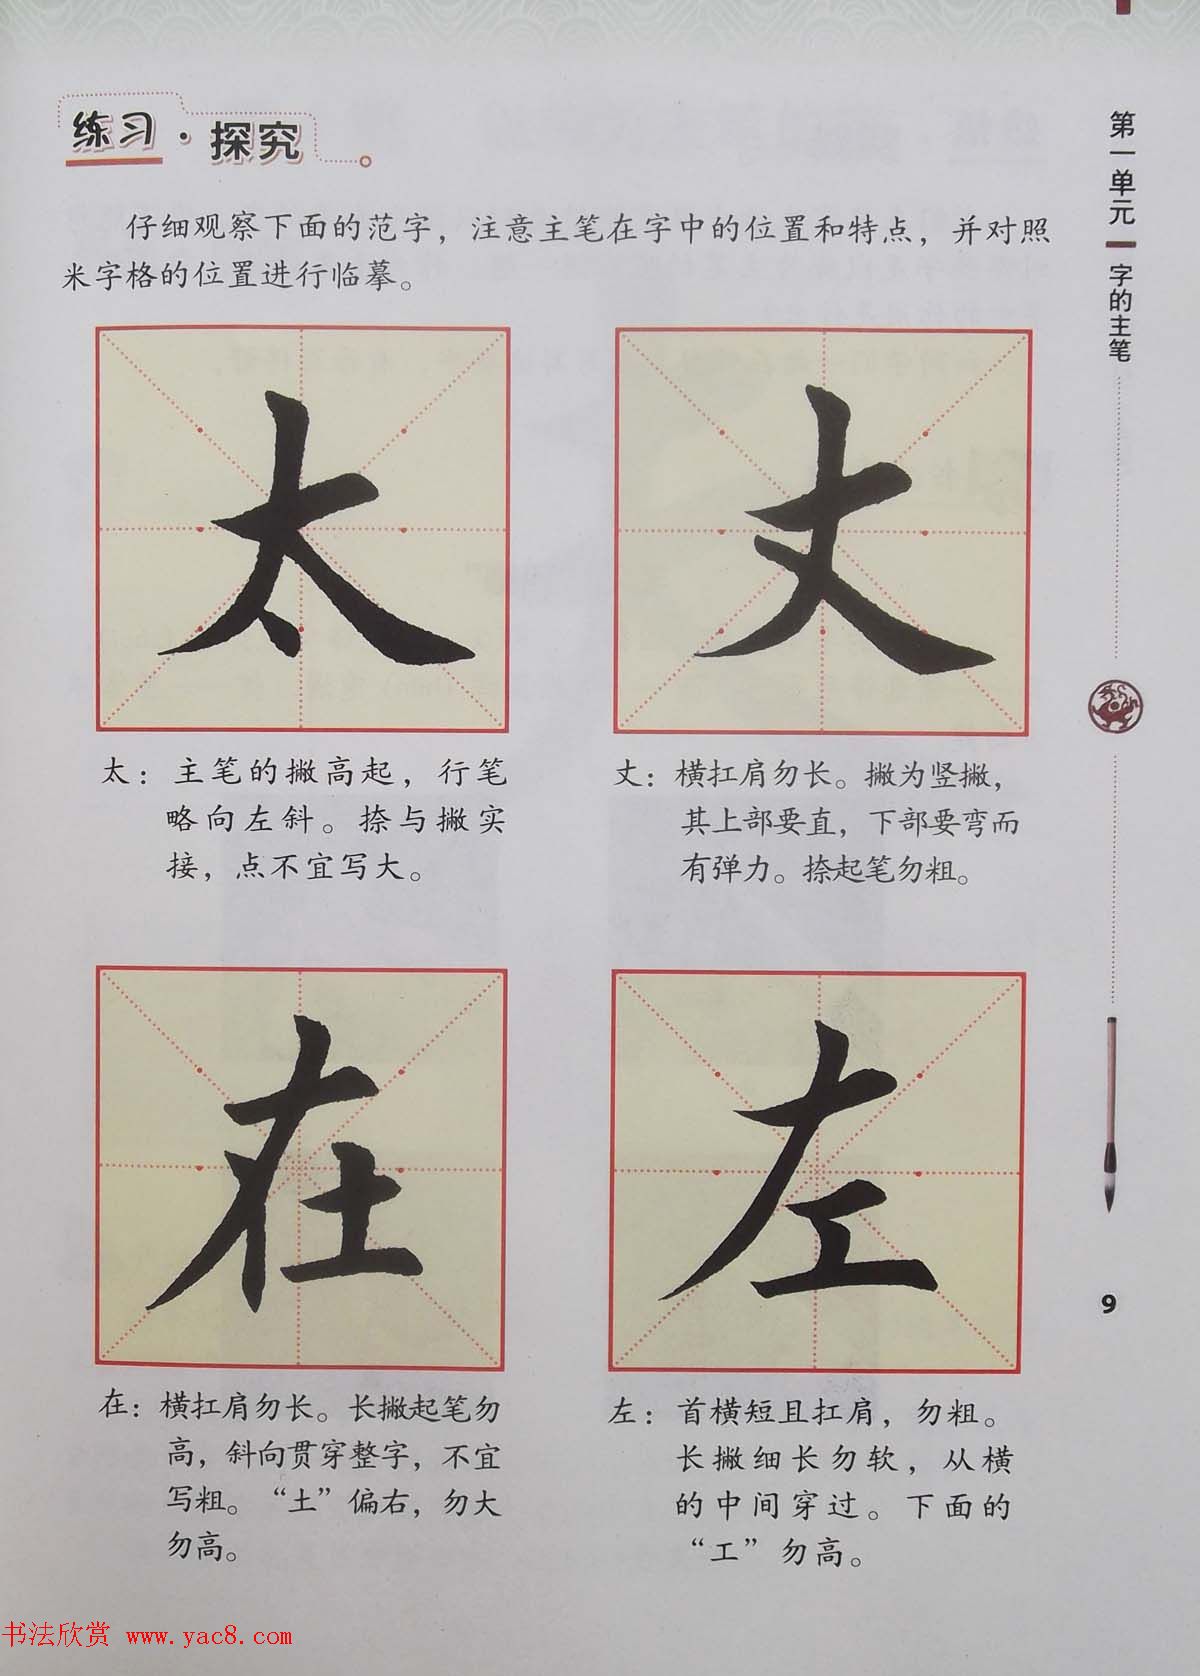 练习·探究
仔细观察下面的范字，注意主笔在字中的位置和特点，并对照
米字格的位置进行临摹。
太
丈
太：主笔的撇高起，行笔
略向左斜。捺与撇实
接，点不宜写大。
丈：横扛肩勿长。撇为竖撇，
其上部要直，下部要弯而
有弹力。捺起笔勿粗。
在
左
在：横扛肩勿长。长撇起笔勿
高，斜向贯穿整字，不宜
写粗。“土”偏右，勿大
勿高。
左：首横短且扛肩，勿粗。
长撇细长勿软，从横
的中间穿过。下面的
“工”勿高。
第一单元
字的主笔
9
书法欣赏 www.yac8.com